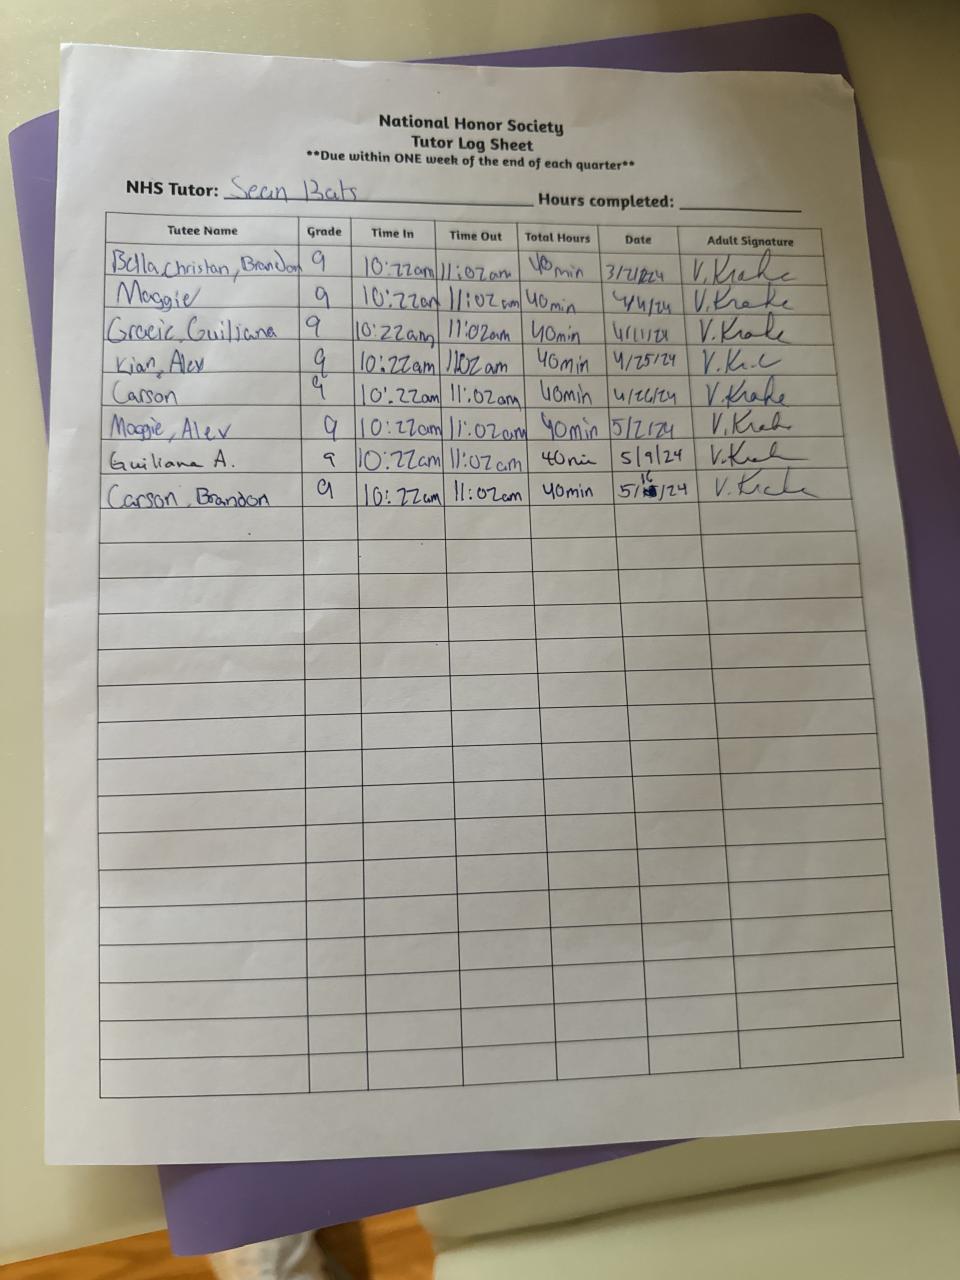 National Honor Society
Tutor Log Sheet
**Due within ONE week of the end of each quarter**
NHS Tutor: Sean Bats Hours completed:
Tutee Name Grade Time In Time Out Total Hours Date Adult Signature
Bella, Christian, Brandon 9 10:22am 11:02am 40min V. Krake
Maggie 9 10:22am 11:02am 40min 4/4/24 V. Krake
Gracie, Guiliana 9 10:22am 11:02am 40min 4/11/24 V. Krake
Kian, Alex 9 10:22am 1102am 40min 4/25/24 V.
Carson 9 10:22am 11:02am 40min 4/26/24 V. Krake
Maggie, Alex 9 10:22am 11:02am 40min 5/2/24 V. Krake
Guiliana A. 9 10:22am 11:02am 40min 5/9/24 V. Krake
Carson, Brandon 9 10:22am 11:02am 40min 5/16/24 V. Krake